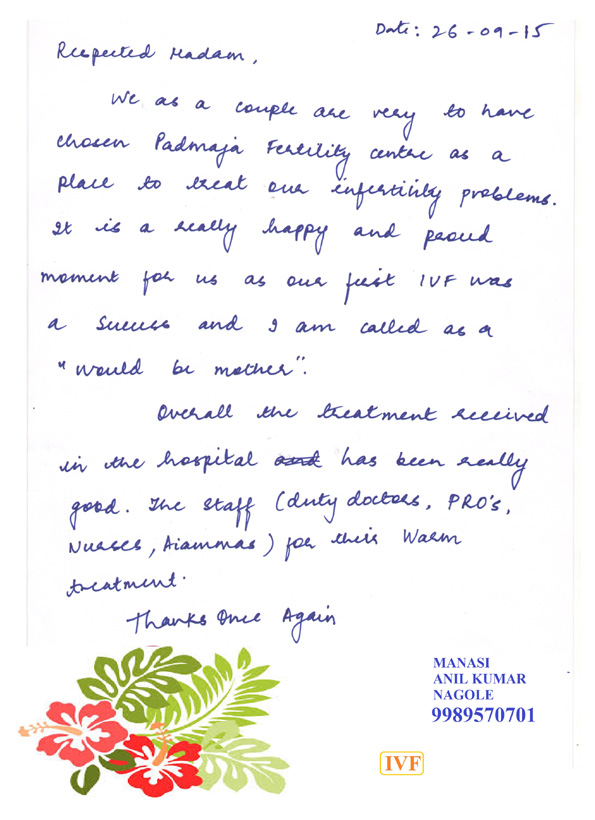 Date: 26-09-15
Respected Madam,
We as a couple are very to have
chosen Padmaja Fertility centre as a
place to treat our infertility problems.
It is a really happy and proud
moment for us as our first IVF was
a success and I am called as a
"would be mother".
Overall the treatment received
in the hospital and has been really
good. The staff (duty doctors, PRO's,
Nurses, Aiammas) for their Warm
treatment.
Thanks Once Again
MANASI
ANIL KUMAR
NAGOLE
9989570701
IVF